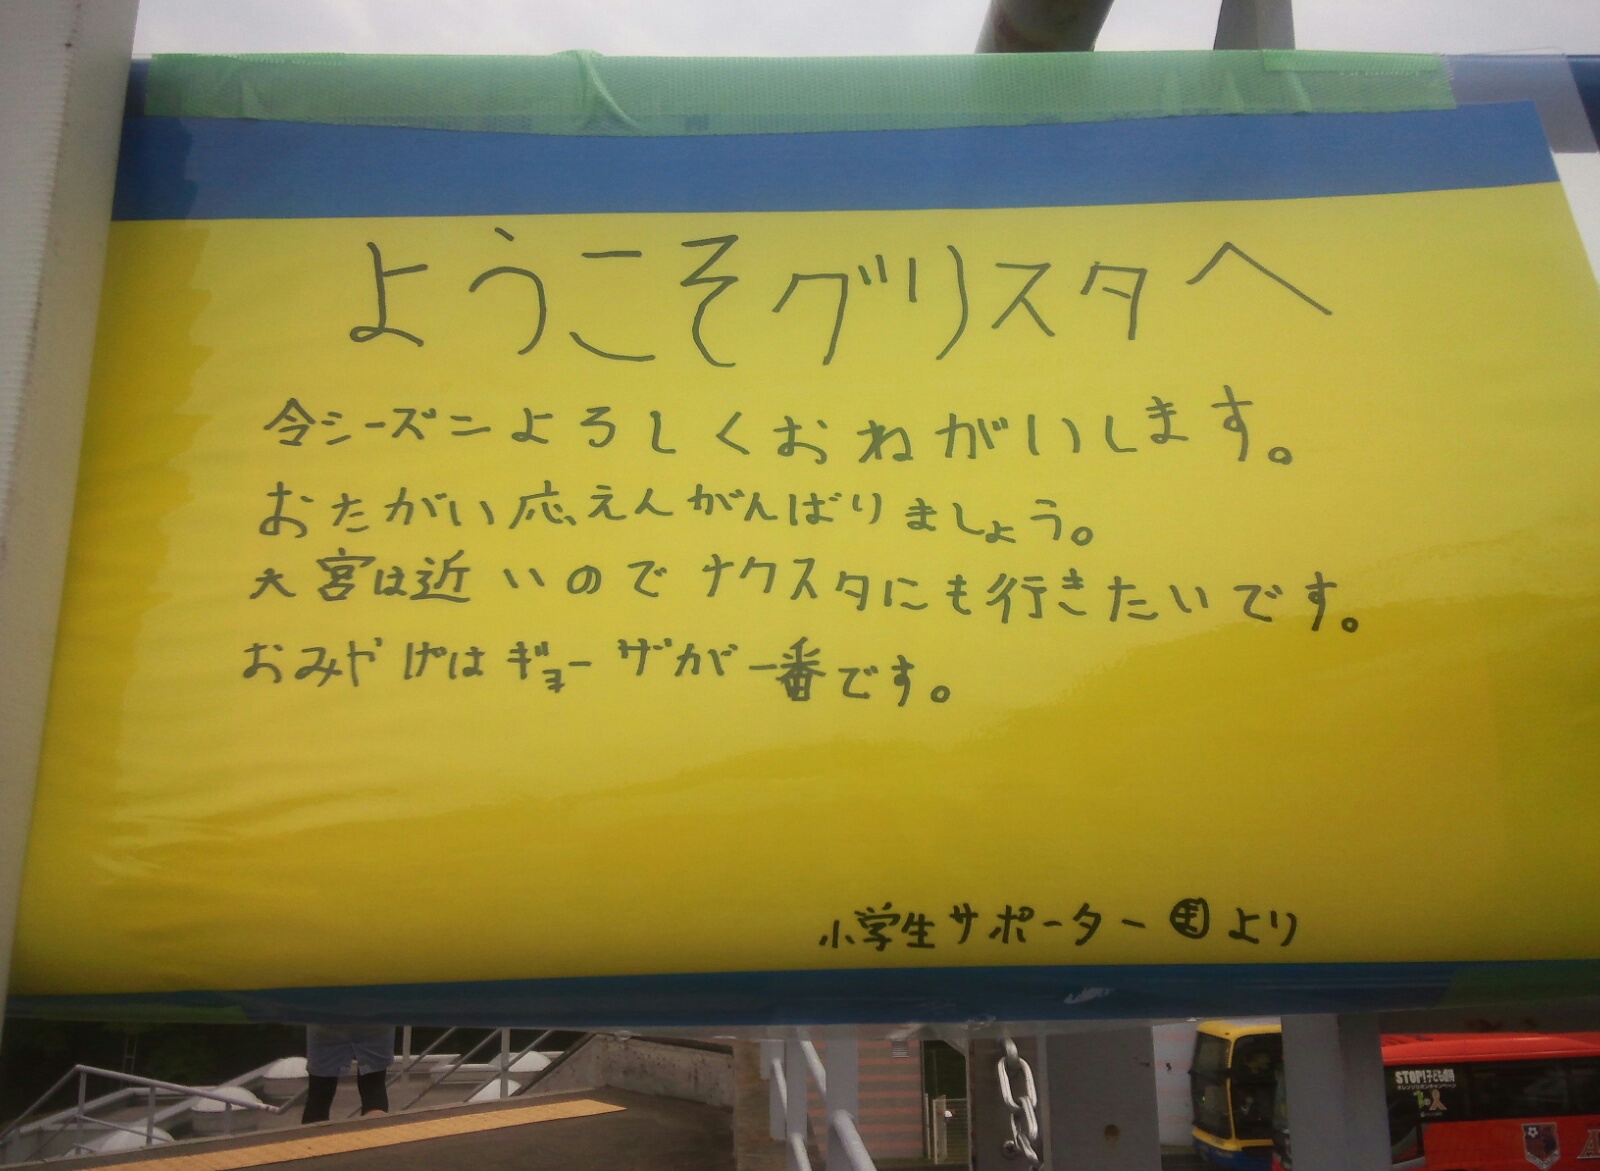 ようこそグリスタへ
今シーズンよろしくおねがいします。
おたがい応えんがんばりましょう。
大宮は近いのでナクスタにも行きたいです。
おみやげはギョーザが一番です。
小学生サポーターより
STOP!子ども虐待
オレンジリボンキャンペーン